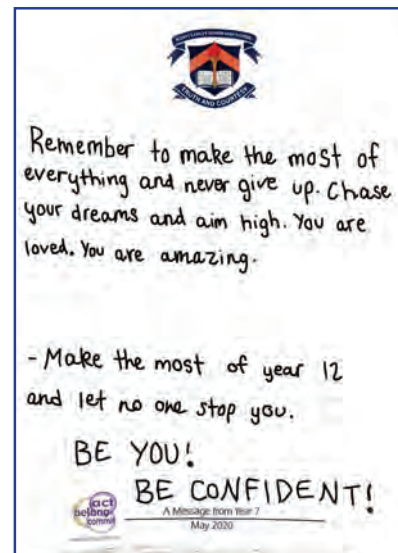 MOUNT LAWLEY SENIOR HIGH SCHOOL
TRUTH AND COURTESY
Remember to make the most of
everything and never give up. Chase
your dreams and aim high. You are
loved. You are amazing.
- Make the most of year 12
and let no one stop you.
BE YOU!
BE CONFIDENT!
act
belong
commit
A Message from Year 7
May 2020